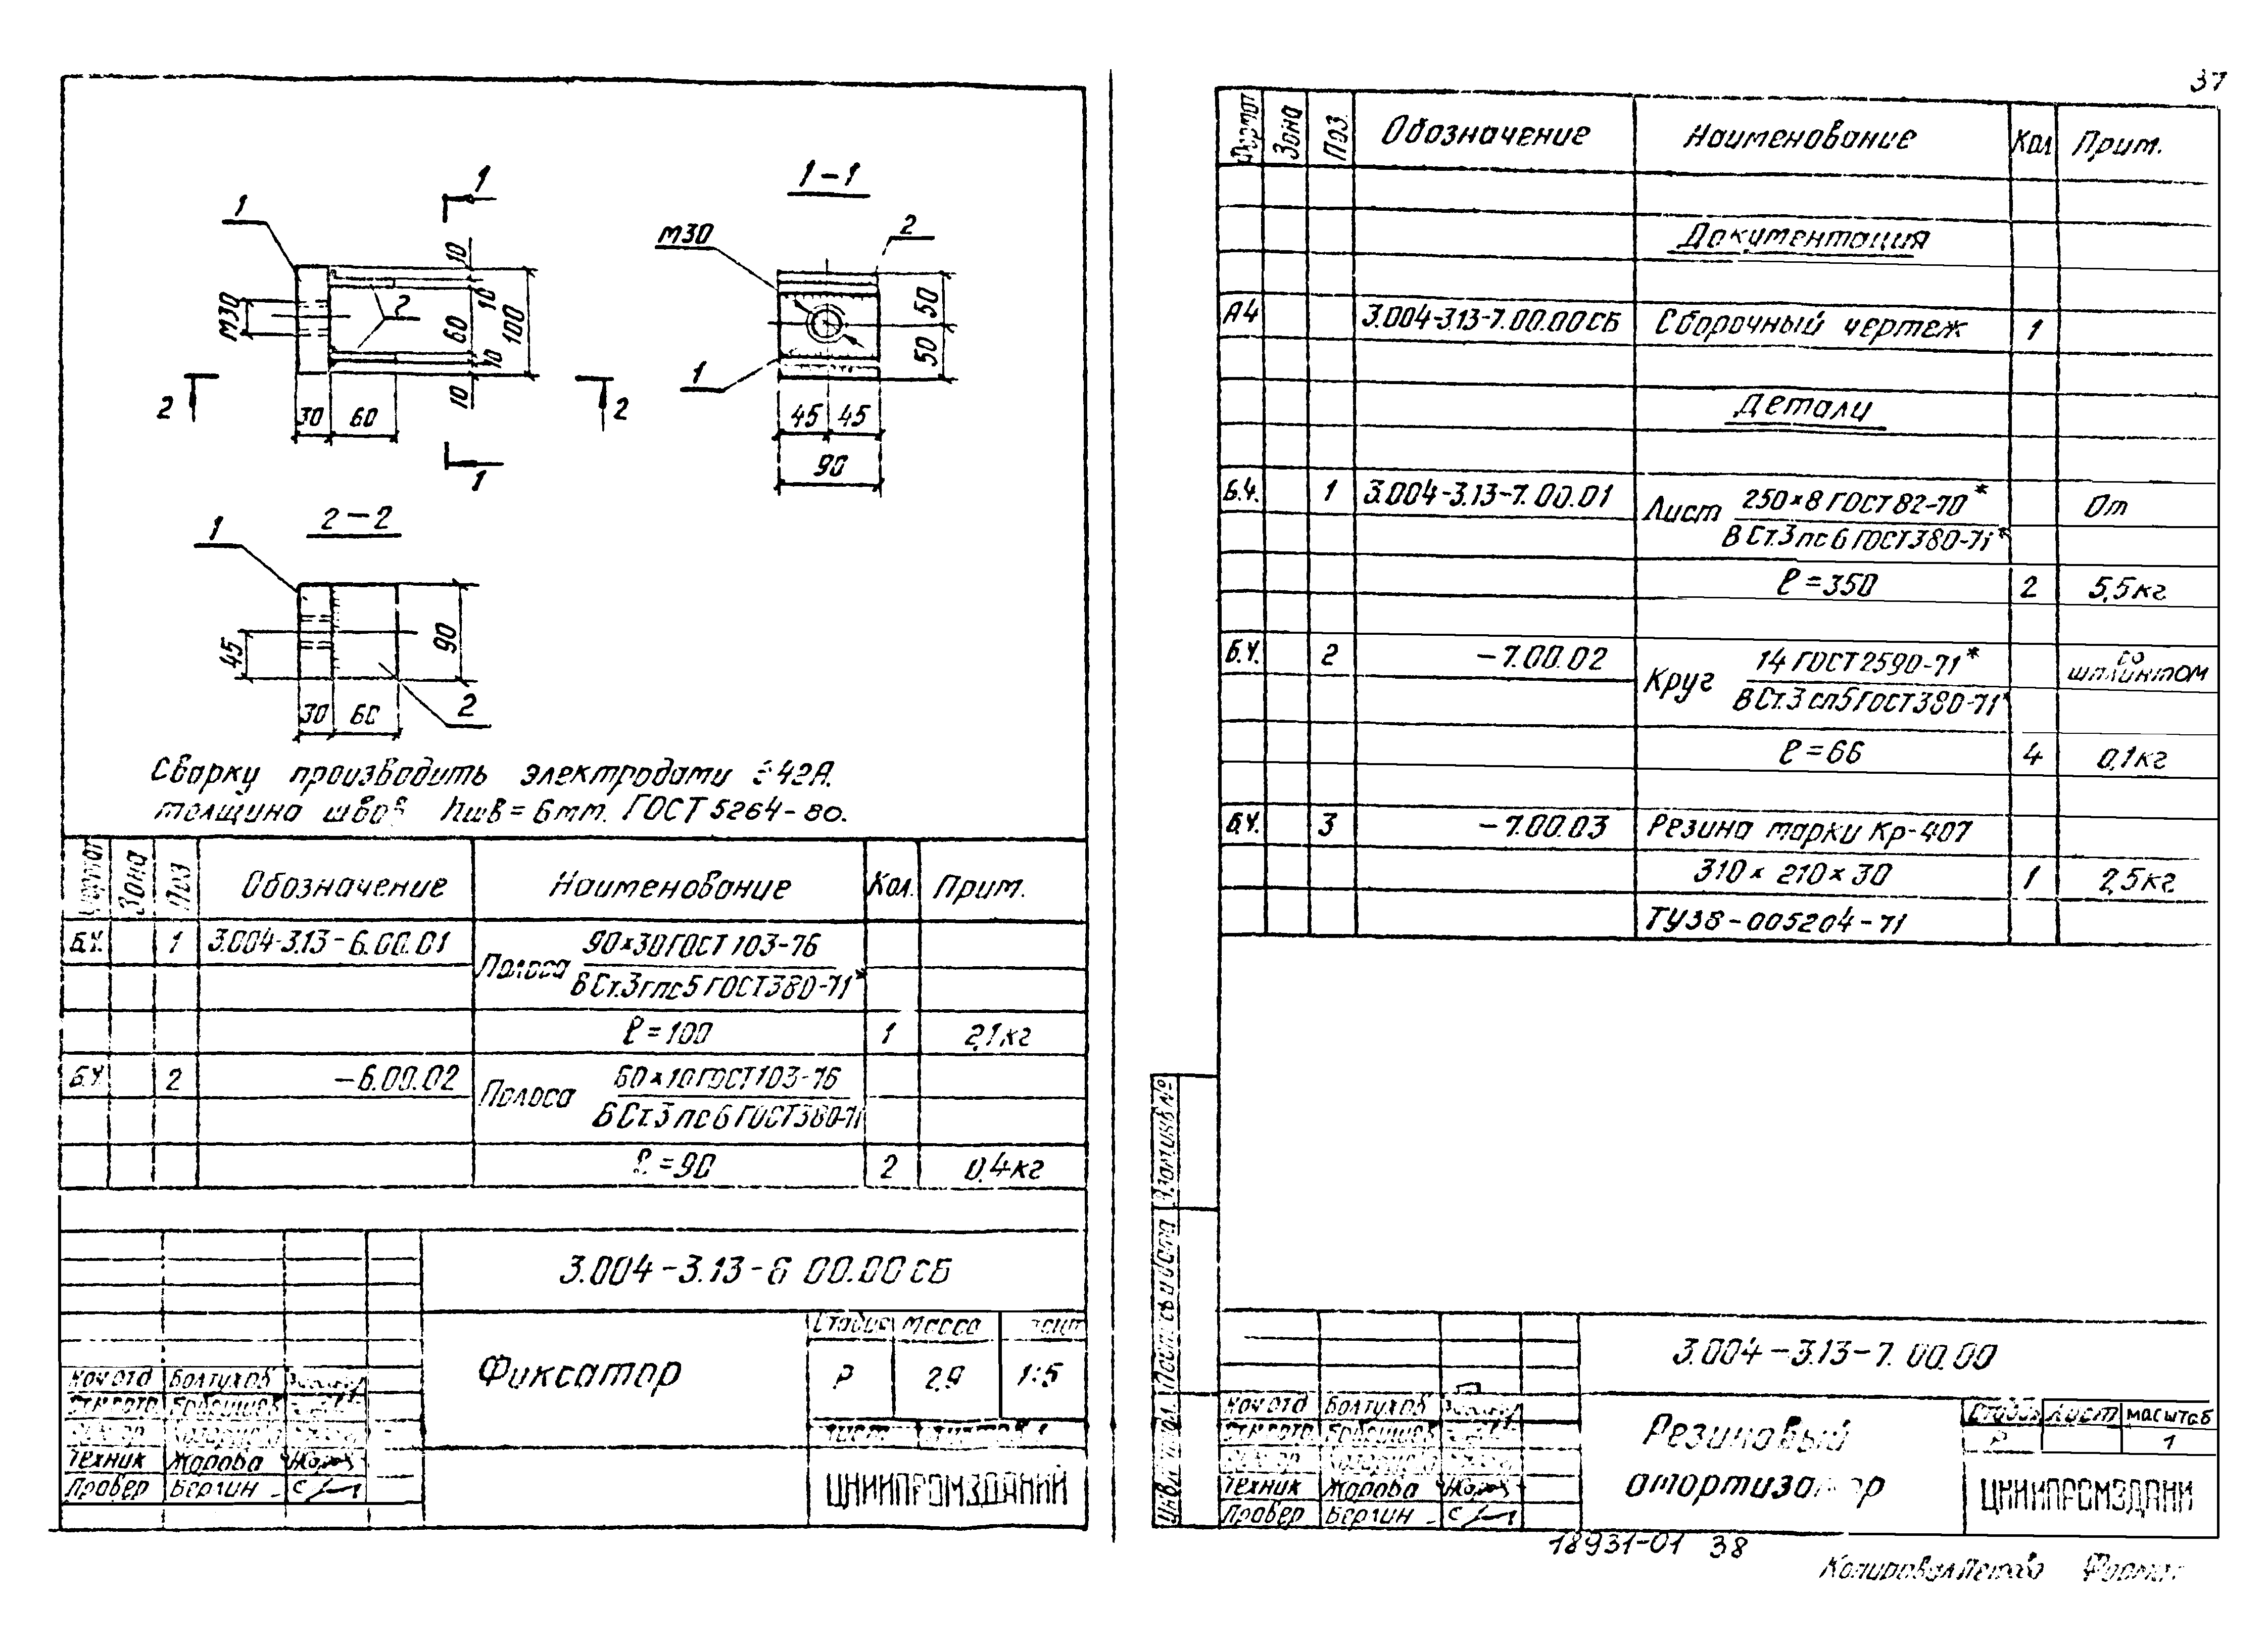 37
1
1
10
М30
2
10
60
10
100
10
2
2
30
60
1
1-1
М30
2
50
50
1
45
45
90
2-2
1
45
90
30
60
2
Сварку производить электродами Э42А.
Толщина швов hшв = 6мм. ГОСТ 5264-80.
Формат Зона Поз Обозначение Наименование Кол. Прим.
Б.Ч. 1 3.004-3.13-6.00.01 Полоса 90×30 ГОСТ 103-76
В Ст.3гпс5 ГОСТ 380-71*
ℓ=100 1 2,1кг
Б.Ч 2 -6.00.02 Полоса 60×10 ГОСТ 103-76
В Ст.3пс6 ГОСТ 380-71
ℓ=90 2 0,4кг
3.004-3.13-6 00.00 СБ
Фиксатор
Стадия Масса
Р 2,9 1:5
Лист Листов 1
ЦНИИПРОМЗДАНИЙ
Нач отд Болтухов
Техник Жарова
Провер Бергин
Формат Зона Поз. Обозначение Наименование Кол Прим.
Документация
А4 3.004-3.13-7.00.00 СБ Сборочный чертеж 1
Детали
Б.Ч. 1 3.004-3.13-7.00.01 Лист 250×8 ГОСТ 82-70* От
В Ст.3пс6 ГОСТ 380-71*
ℓ=350 2 5,5кг
Б.Ч. 2 -7.00.02 Круг 14 ГОСТ 2590-71* со шплинтом
В Ст.3 сп5 ГОСТ 380-71*
ℓ=66 4 0,1кг
Б.Ч. 3 -7.00.03 Резина марки Кр-407
310×210×30 1 2,5кг
ТУ38-005204-71
Взам инв №
Подпись и дата
Инв. № подл.
3.004-3.13-7.00.00
Резиновый
амортизатор
Стадия Лист масштаб
Р 1
ЦНИИПРОМЗДАНИ
Нач отд Болтухов
Техник Жарова
Провер Бергин
18931-01 38
Копировал Формат